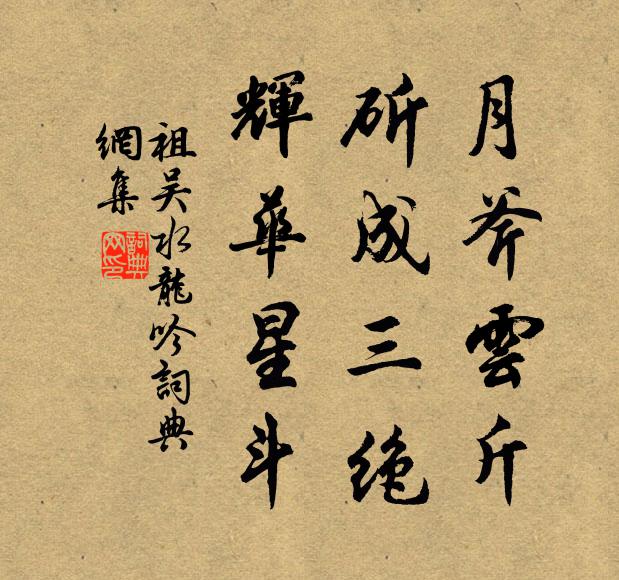 月斧雲斤
斫成三绝
輝華星斗
祖吴水龍吟詞典
網集
詞典
网印